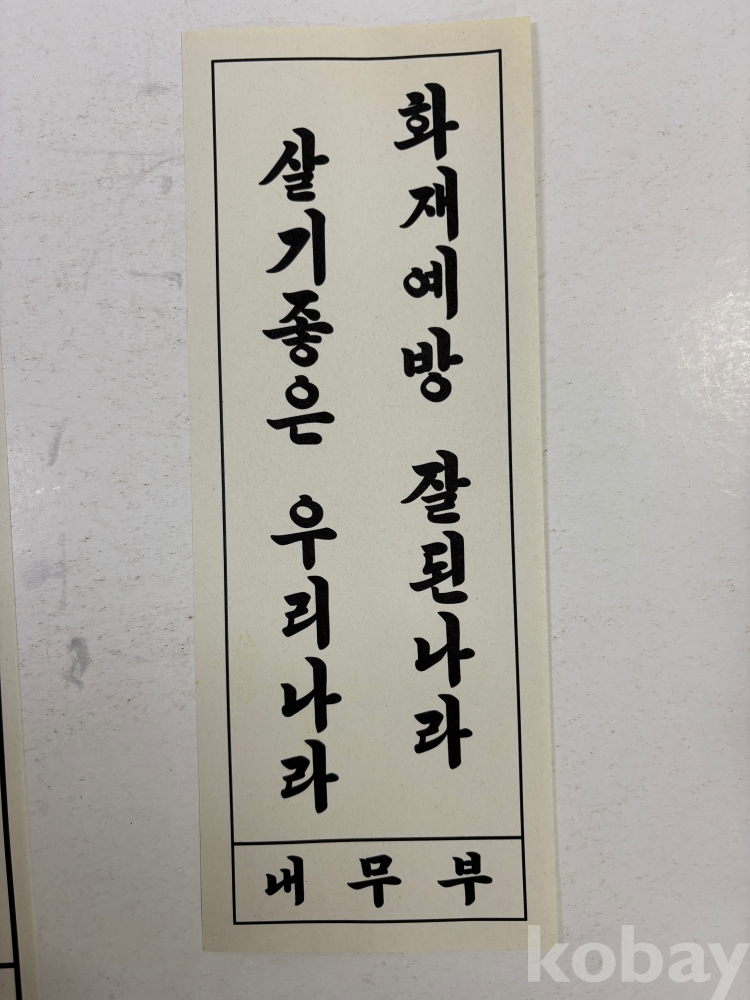 화재예방 잘된나라
살기좋은 우리나라
내무부
kobay